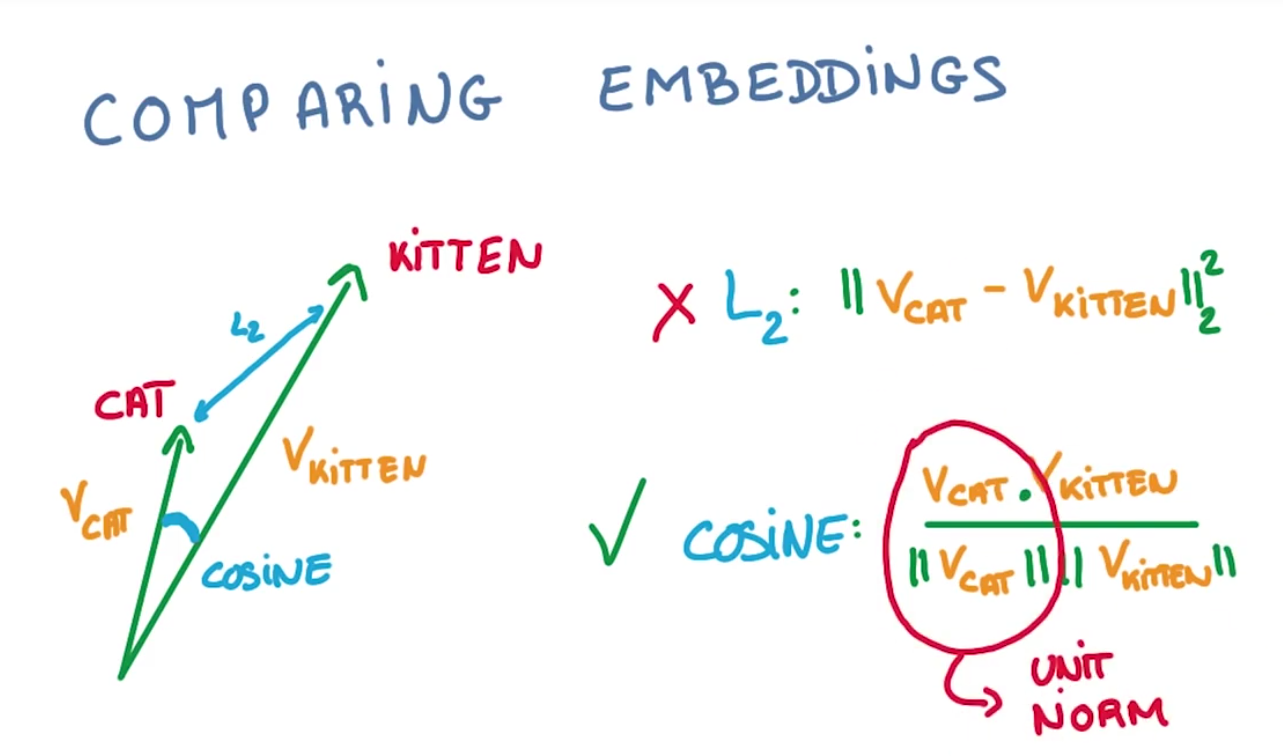 COMPARING EMBEDDINGS
KITTEN
L2
CAT
VKITTEN
VCAT
COSINE
X L2: || VCAT - VKITTEN ||₂²
✓ COSINE: VCAT . VKITTEN
|| VCAT || || VKITTEN ||
UNIT
NORM